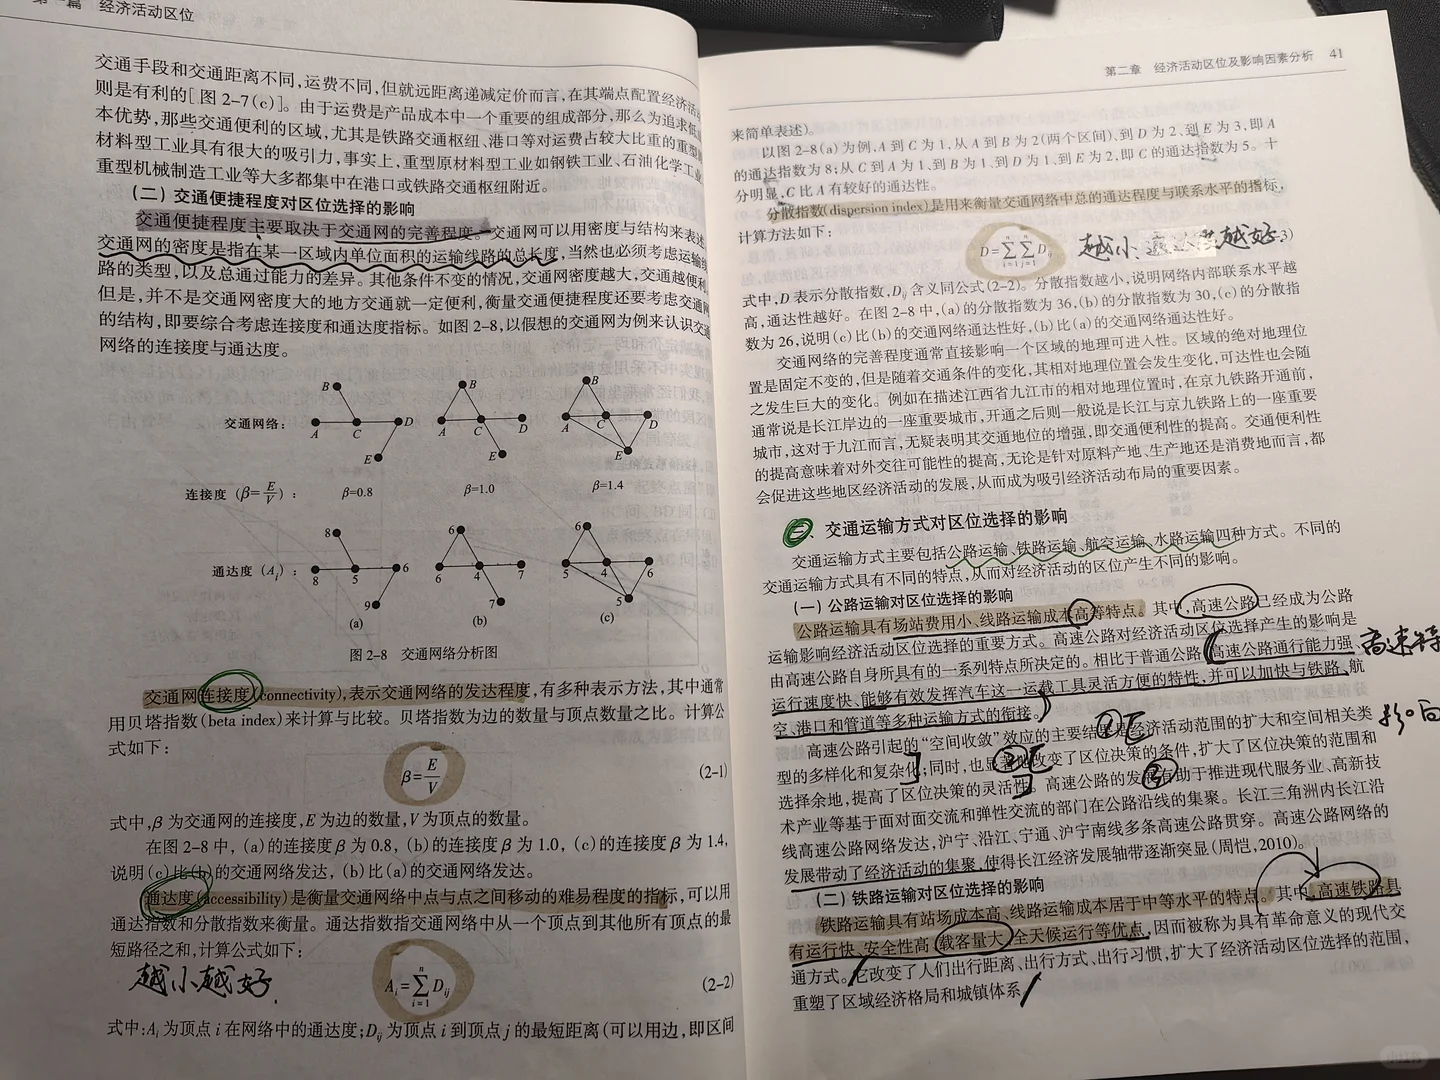 第一篇　经济活动区位
交通手段和交通距离不同,运费不同,但就远距离递减定价而言,在其端点配置经济活
则是有利的[图2-7(c)]。由于运费是产品成本中一个重要的组成部分,那么为追求低
本优势,那些交通便利的区域,尤其是铁路交通枢纽、港口等对运费占较大比重的重型
材料型工业具有很大的吸引力,事实上,重型原材料型工业如钢铁工业、石油化学工业
重型机械制造工业等大多都集中在港口或铁路交通枢纽附近。
(二) 交通便捷程度对区位选择的影响
交通便捷程度主要取决于交通网的完善程度。交通网可以用密度与结构来表述
交通网的密度是指在某一区域内单位面积的运输线路的总长度,当然也必须考虑运输线
路的类型,以及总通过能力的差异。其他条件不变的情况,交通网密度越大,交通越便利
但是,并不是交通网密度大的地方交通就一定便利,衡量交通便捷程度还要考虑交通网
的结构,即要综合考虑连接度和通达度指标。如图2-8,以假想的交通网为例来认识交通
网络的连接度与通达度。
交通网络:
A B C D E
A B C D E
A B C D E
连接度 (β=E/V): β=0.8 β=1.0 β=1.4
通达度 (Ai):
8 8 5 6 9
6 6 4 7 7
6 5 4 6 5
(a) (b) (c)
图2-8 交通网络分析图
交通网连接度(connectivity),表示交通网络的发达程度,有多种表示方法,其中通常
用贝塔指数(beta index)来计算与比较。贝塔指数为边的数量与顶点数量之比。计算公
式如下:
β=E/V (2-1)
式中,β为交通网的连接度,E为边的数量,V为顶点的数量。
在图2-8中,(a)的连接度β为0.8,(b)的连接度β为1.0,(c)的连接度β为1.4,
说明(c)比(b)的交通网络发达,(b)比(a)的交通网络发达。
通达度(accessibility)是衡量交通网络中点与点之间移动的难易程度的指标,可以用
通达指数和分散指数来衡量。通达指数指交通网络中从一个顶点到其他所有顶点的最
短路径之和,计算公式如下:
越小越好.
Ai=∑(i=1→n)Dij (2-2)
式中:Ai为顶点i在网络中的通达度;Dij为顶点i到顶点j的最短距离(可以用边,即区间
第二章　经济活动区位及影响因素分析　41
来简单表述)。
以图2-8(a)为例,A到C为1,从A到B为2(两个区间)、到D为2、到E为3,即A
的通达指数为8;从C到A为1、到B为1、到D为1、到E为2,即C的通达指数为5。十
分明显,C比A有较好的通达性。
分散指数(dispersion index)是用来衡量交通网络中总的通达程度与联系水平的指标,
计算方法如下:
D=∑(i=1→n)∑(j=1→n)Dij 越小、通达度越好 3)
式中,D表示分散指数,Dij含义同公式(2-2)。分散指数越小,说明网络内部联系水平越
高,通达性越好。在图2-8中,(a)的分散指数为36,(b)的分散指数为30,(c)的分散指
数为26,说明(c)比(b)的交通网络通达性好,(b)比(a)的交通网络通达性好。
交通网络的完善程度通常直接影响一个区域的地理可进入性。区域的绝对地理位
置是固定不变的,但是随着交通条件的变化,其相对地理位置会发生变化,可达性也会随
之发生巨大的变化。例如在描述江西省九江市的相对地理位置时,在京九铁路开通前,
通常说是长江岸边的一座重要城市,开通之后则一般说是长江与京九铁路上的一座重要
城市,这对于九江而言,无疑表明其交通地位的增强,即交通便利性的提高。交通便利性
的提高意味着对外交往可能性的提高,无论是针对原料产地、生产地还是消费地而言,都
会促进这些地区经济活动的发展,从而成为吸引经济活动布局的重要因素。
二、交通运输方式对区位选择的影响
交通运输方式主要包括公路运输、铁路运输、航空运输、水路运输四种方式。不同的
交通运输方式具有不同的特点,从而对经济活动的区位产生不同的影响。
(一) 公路运输对区位选择的影响
公路运输具有场站费用小、线路运输成本高等特点。其中,高速公路已经成为公路
运输影响经济活动区位选择的重要方式。高速公路对经济活动区位选择产生的影响是
由高速公路自身所具有的一系列特点所决定的。相比于普通公路,高速公路通行能力强、
高速特
运行速度快、能够有效发挥汽车这一运载工具灵活方便的特性,并可以加快与铁路、航
空、港口和管道等多种运输方式的衔接。
高速公路引起的“空间收敛”效应的主要结果是经济活动范围的扩大和空间相关类
影响
型的多样化和复杂化;同时,也显著地改变了区位决策的条件,扩大了区位决策的范围和
选择余地,提高了区位决策的灵活性。高速公路的发展有助于推进现代服务业、高新技
术产业等基于面对面交流和弹性交流的部门在公路沿线的集聚。长江三角洲内长江沿
线高速公路网络发达,沪宁、沿江、宁通、沪宁南线多条高速公路贯穿。高速公路网络的
发展带动了经济活动的集聚,使得长江经济发展轴带逐渐突显(周恺,2010)。
(二) 铁路运输对区位选择的影响
铁路运输具有站场成本高、线路运输成本居于中等水平的特点。其中,高速铁路具
有运行快、安全性高、载客量大、全天候运行等优点,因而被称为具有革命意义的现代交
通方式。它改变了人们出行距离、出行方式、出行习惯,扩大了经济活动区位选择的范围,
重塑了区域经济格局和城镇体系。